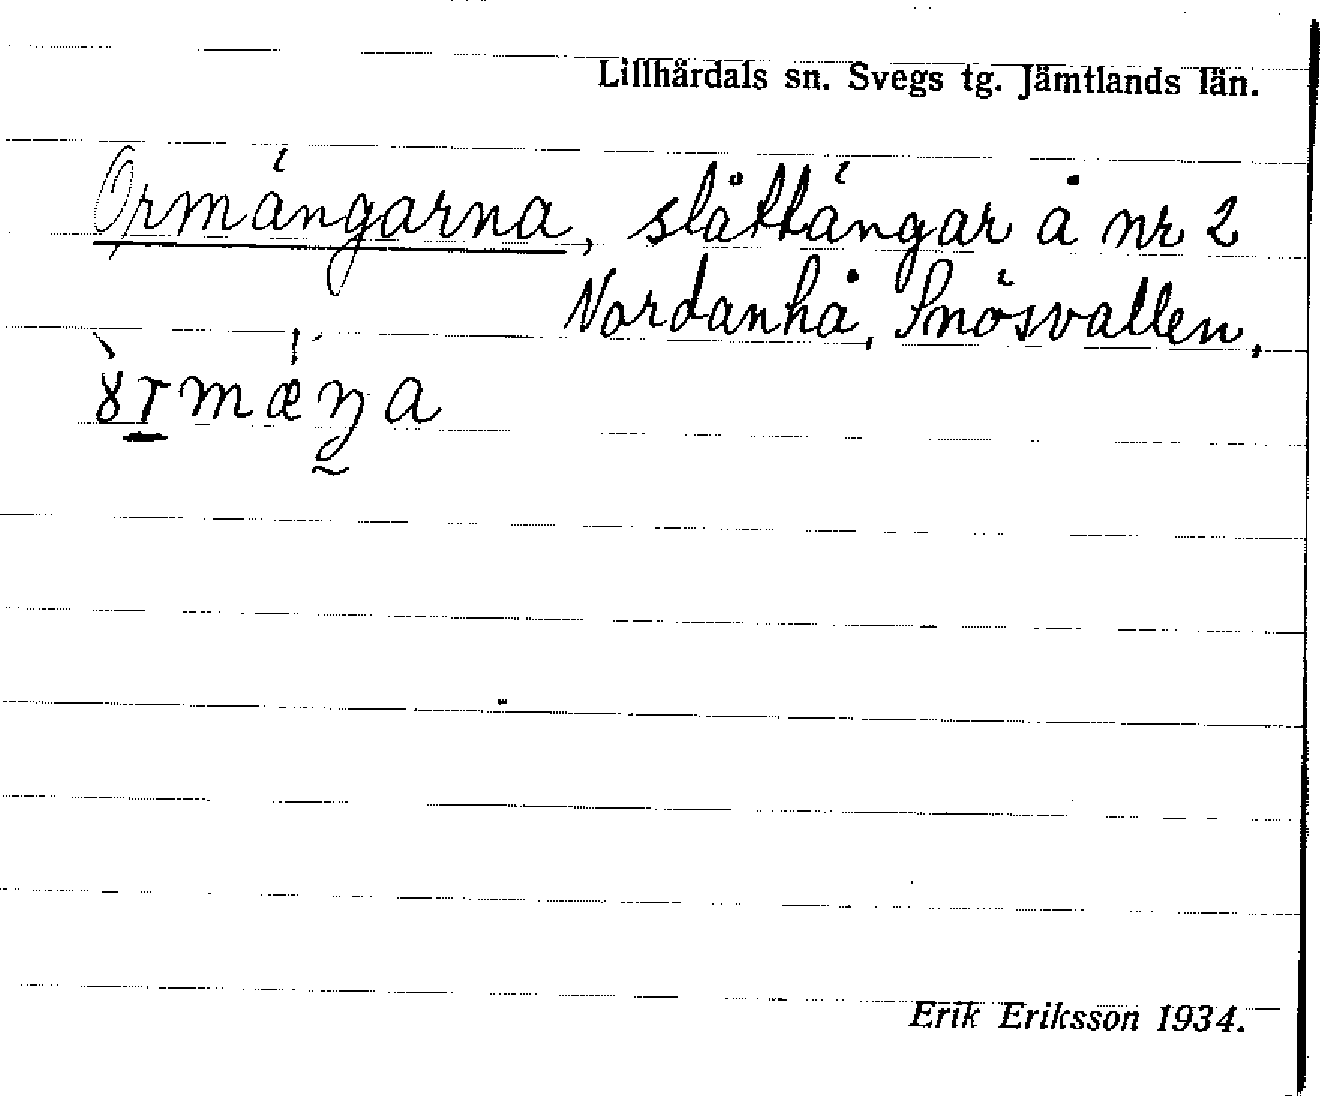 Lillhärdals sn. Svegs tg. Jämtlands län.
Ormängarna, slåttängar å nr 2
Nordanhå, Snösvallen,
Erik Eriksson 1934.